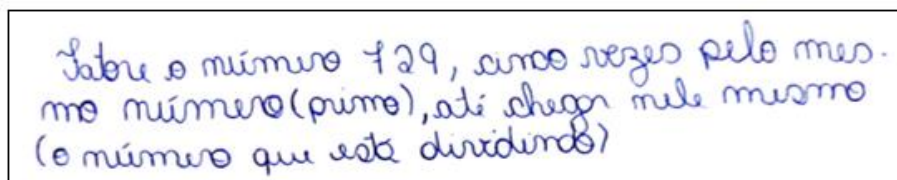 Fatore o número 729, cinco vezes pelo mes-
mo número (primo), até chegar nele mesmo
(o número que está dividindo)